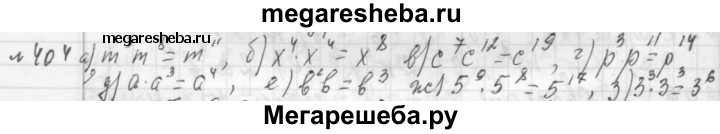 megaresheba.ru
№404 а) m³m⁸=m¹¹, б) x⁴·x⁴=x⁸ в) c⁷c¹²=c¹⁹, г) p³p¹¹=p¹⁴
д) a·a³=a⁴, е) b²b=b³ ж) 5⁹·5⁸=5¹⁷, з) 3³·3³=3⁶
Мегарешеба.ру